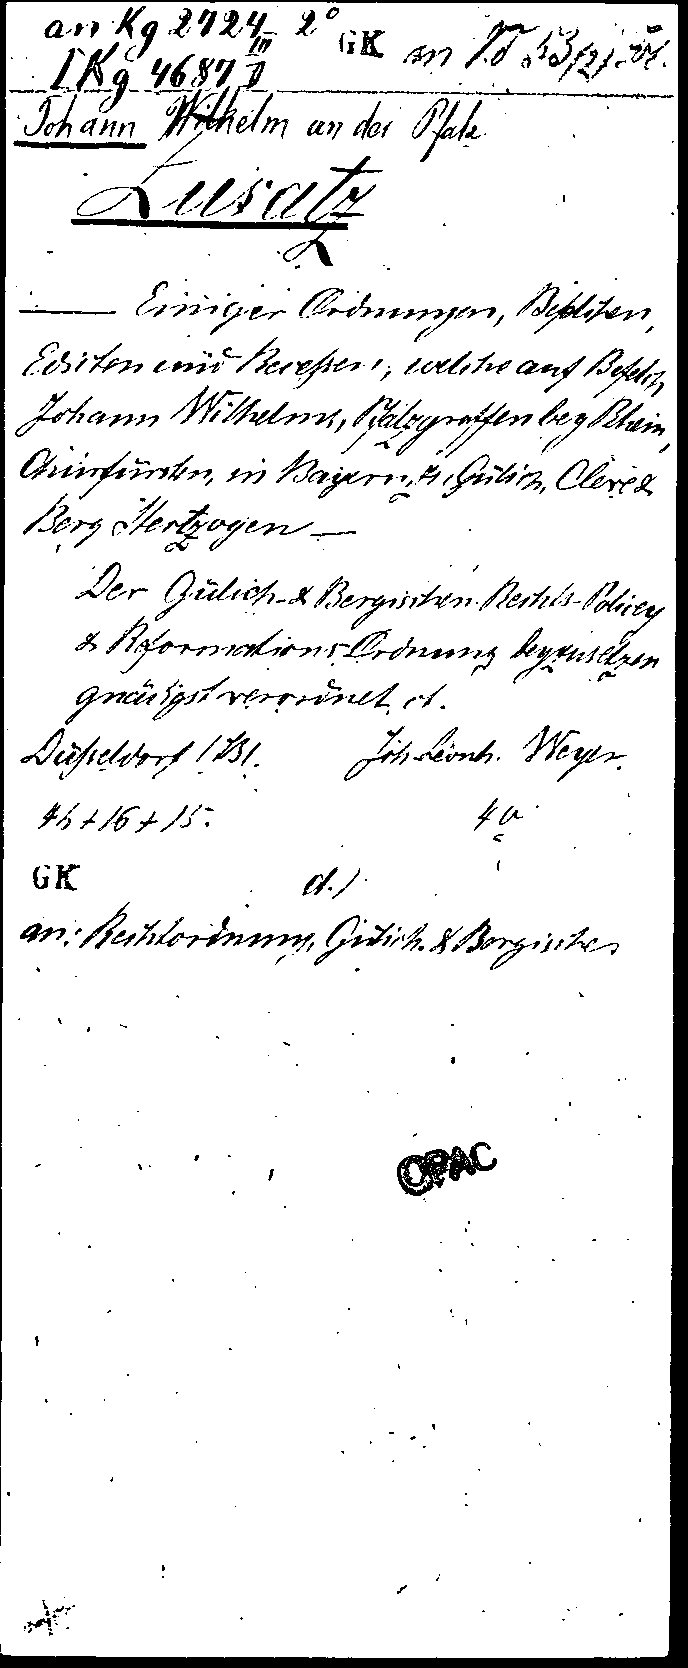 an Kg 2724 III 2°
I Kg 4687 II
GK an
Johann Wilhelm an der Pfalz
Zusatz
Einiger Ordnungen, Befelchen,
Edicten und Recessen, welche auf Befelch
Johann Wilhelms, Pfalzgraffen bey Rhein,
Churfürsten, in Bayern, zu Gülich, Cleve &
Berg Hertzogen —
Der Gülich- & Bergischen Rechts-Policey
& Reformations-Ordnung beyzusetzen
gnädigst verordnet
Düsseldorf 1731. Joh. Leonh. Weyer.
+ 16 + 15. 4°
GK
an: Rechtordnung, Gülich. & Bergische
OPAC